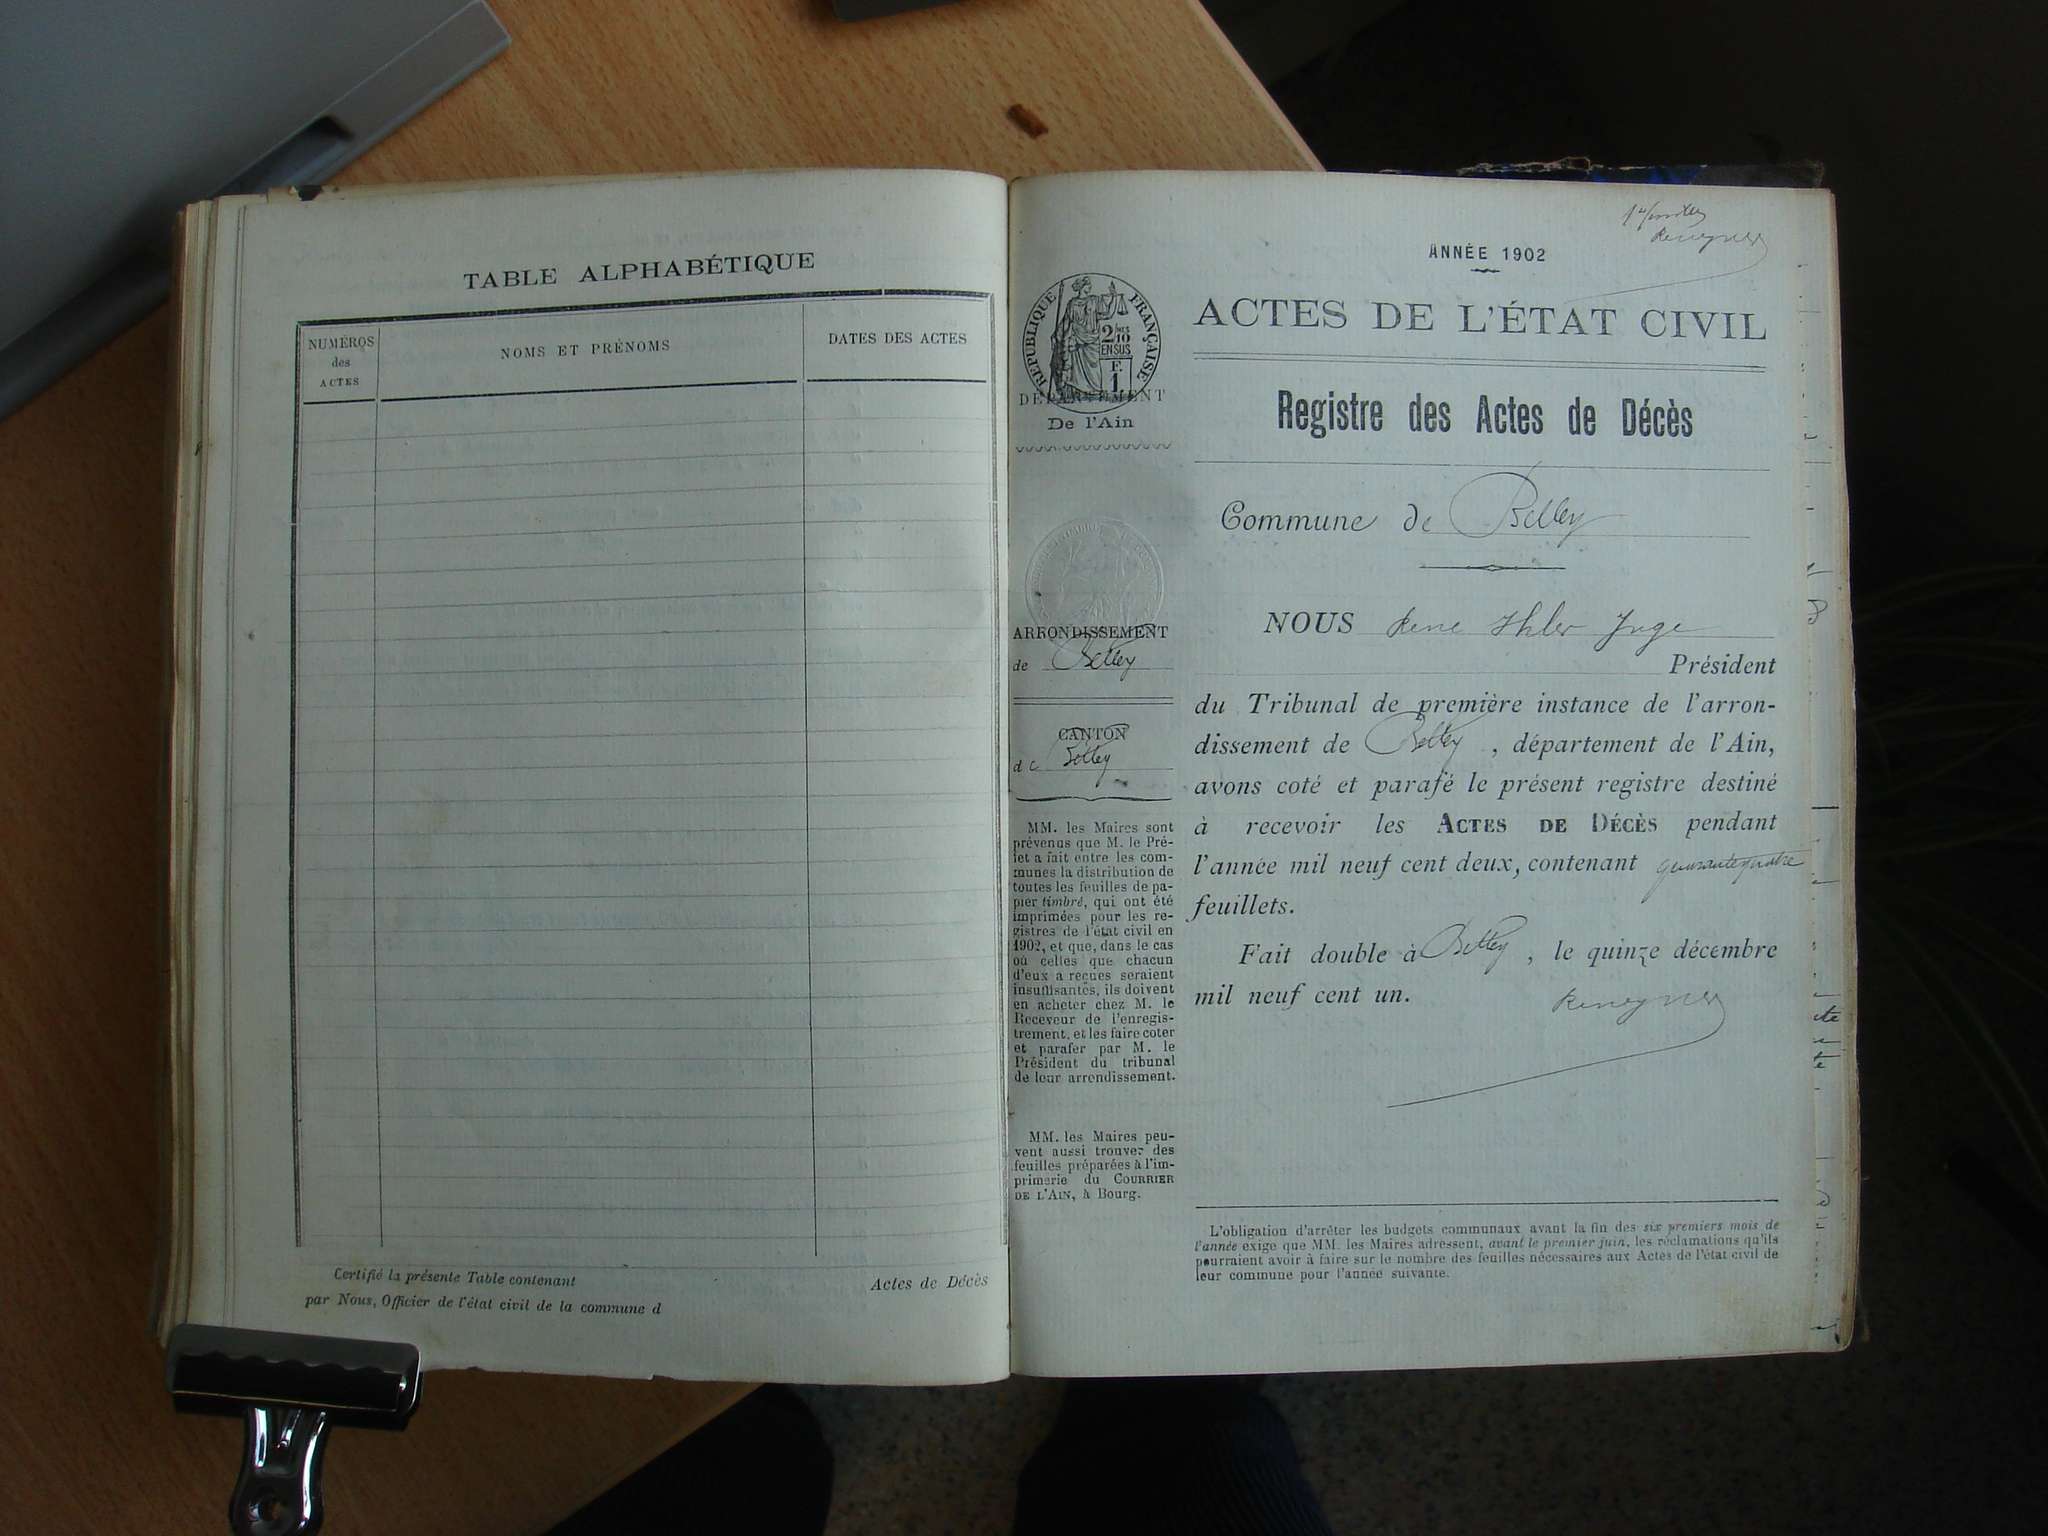 TABLE ALPHABÉTIQUE
NUMÉROS
des
ACTES
NOMS ET PRÉNOMS
DATES DES ACTES
Certifié la présente Table contenant Actes de Décès
par Nous, Officier de l'état civil de la commune d
RÉPUBLIQUE FRANÇAISE
2/10
EN SUS
F.
1
DÉPARTEMENT
De l'Ain
ARRONDISSEMENT
de Belley
CANTON
de Belley
MM. les Maires sont
prévenus que M. le Pré-
fet a fait entre les com-
munes la distribution de
toutes les feuilles de pa-
pier timbré, qui ont été
imprimées pour les re-
gistres de l'état civil en
1902, et que, dans le cas
où celles que chacun
d'eux a reçues seraient
insuffisantes, ils doivent
en acheter chez M. le
Receveur de l'enregis-
trement, et les faire coter
et parafer par M. le
Président du tribunal
de leur arrondissement.
MM. les Maires peu-
vent aussi trouver des
feuilles préparées à l'im-
primerie du COURRIER
DE L'AIN, à Bourg.
ANNÉE 1902
ACTES DE L'ÉTAT CIVIL
Registre des Actes de Décès
Commune de Belley
NOUS René Ihler Juge
Président
du Tribunal de première instance de l'arron-
dissement de Belley, département de l'Ain,
avons coté et parafé le présent registre destiné
à recevoir les ACTES DE DÉCÈS pendant
l'année mil neuf cent deux, contenant quarante quatre
feuillets.
Fait double à Belley, le quinze décembre
mil neuf cent un.
L'obligation d'arrêter les budgets communaux avant la fin des six premiers mois de
l'année exige que MM. les Maires adressent, avant le premier juin, les réclamations qu'ils
pourraient avoir à faire sur le nombre des feuilles nécessaires aux Actes de l'état civil de
leur commune pour l'année suivante.